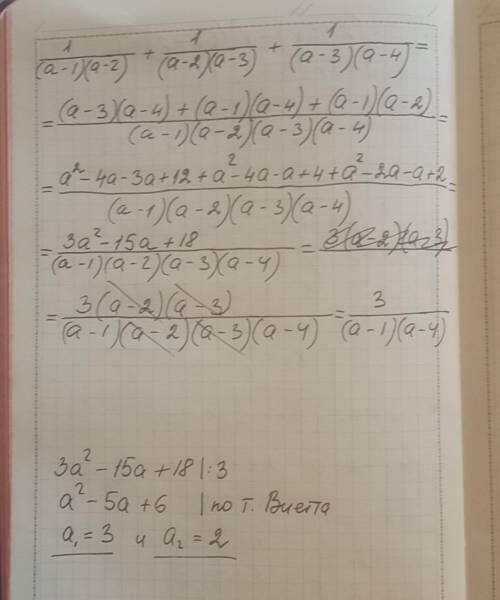 1/((a-1)(a-2)) + 1/((a-2)(a-3)) + 1/((a-3)(a-4)) =
= ((a-3)(a-4) + (a-1)(a-4) + (a-1)(a-2))/((a-1)(a-2)(a-3)(a-4)) =
= (a²-4a-3a+12+a²-4a-a+4+a²-2a-a+2)/((a-1)(a-2)(a-3)(a-4)) =
= (3a²-15a+18)/((a-1)(a-2)(a-3)(a-4)) = 3(a-2)(a-3)
= (3(a-2)(a-3))/((a-1)(a-2)(a-3)(a-4)) = 3/((a-1)(a-4))
3a²-15a+18 |:3
a²-5a+6 | по т. Виета
a₁=3 и a₂=2